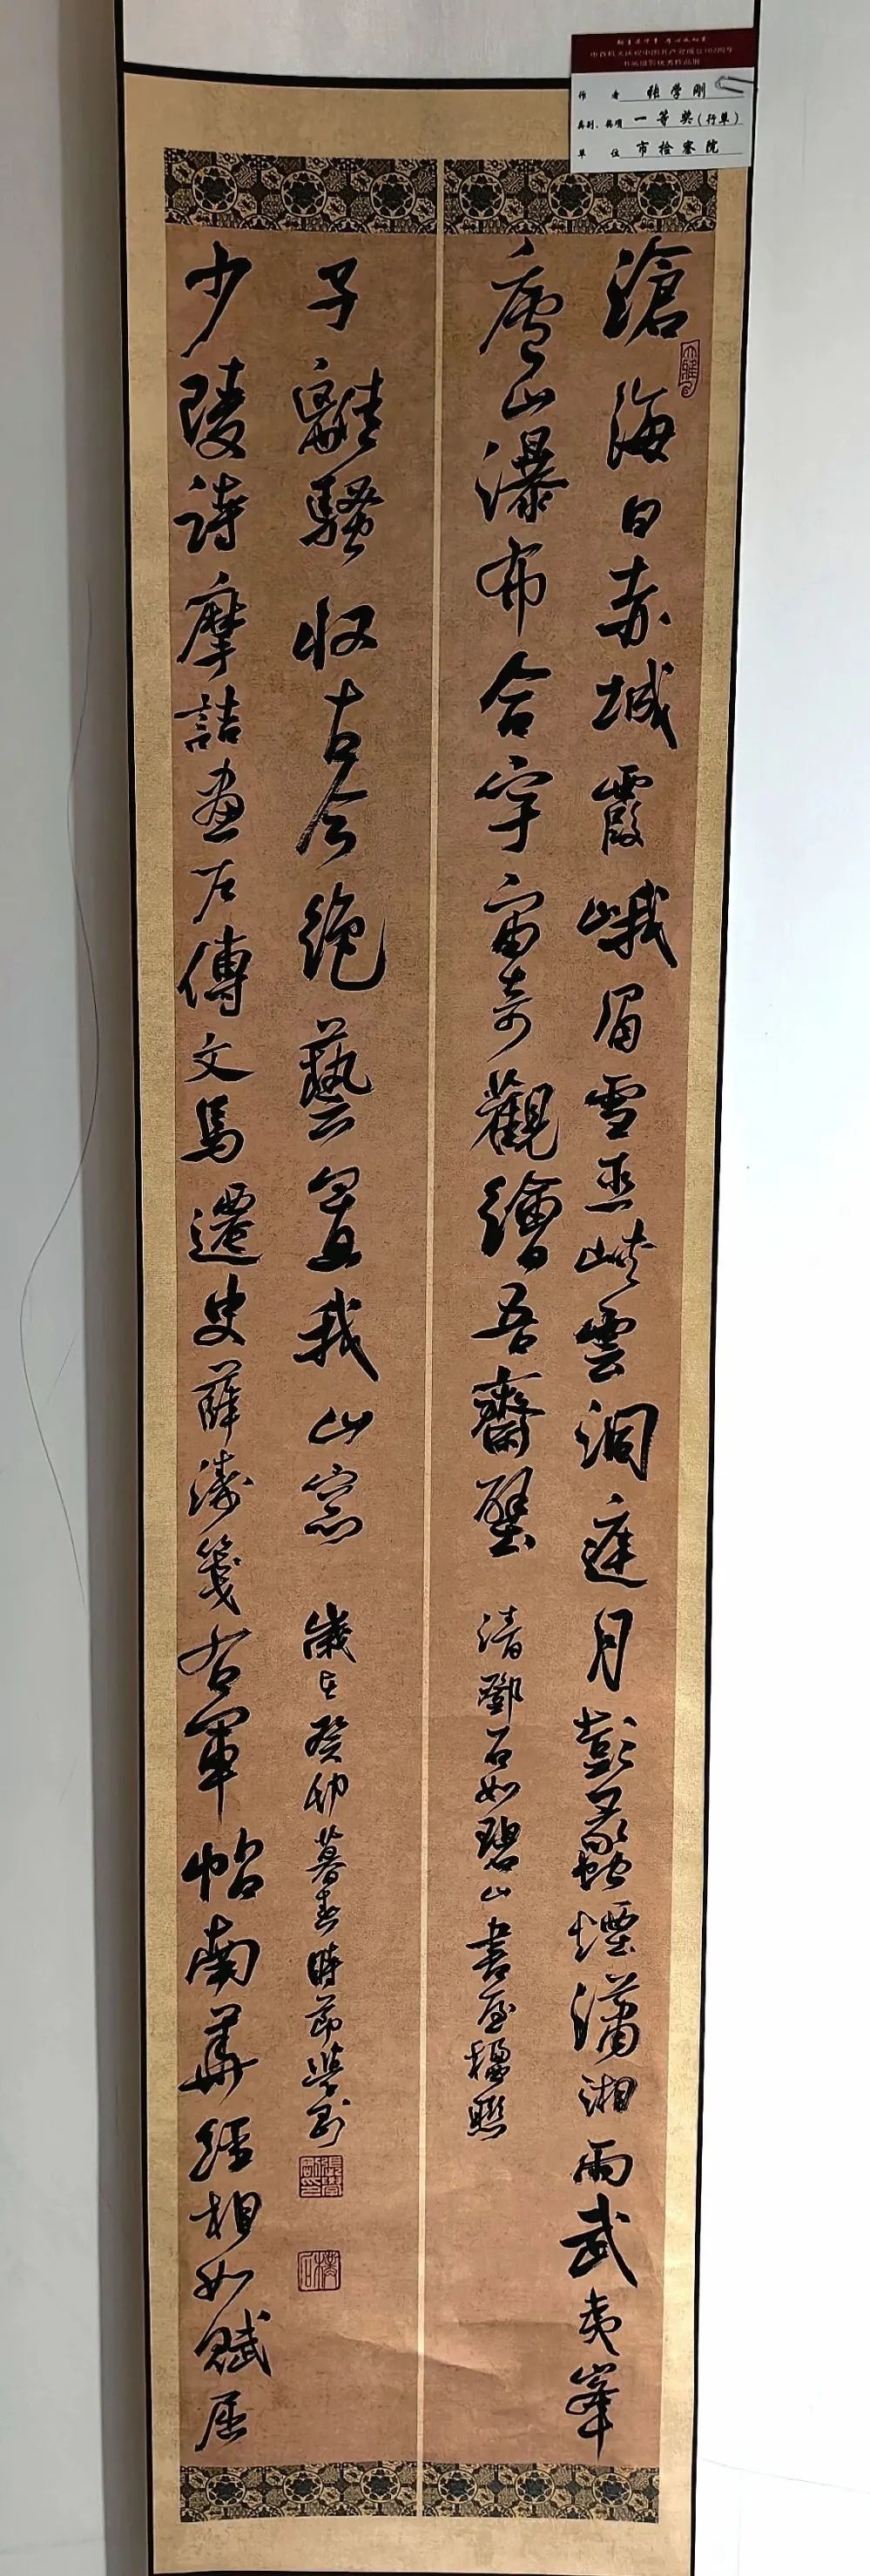 作者 張学刚
类别、奖项 一等奖(行草)
单位 市检察院
滄海日赤城霞峨眉雪巫峽雲洞庭月彭蠡煙瀟湘雨武夷峯
廬山瀑布合宇宙奇觀繪吾齋壁
清鄧石如碧山書屋楹聯
少陵詩摩詰畫左傳文馬遷史薛濤箋右軍帖南華經相如賦屈
子離騷收古今絕藝置我山窓
歲在癸卯暮春時節學剛